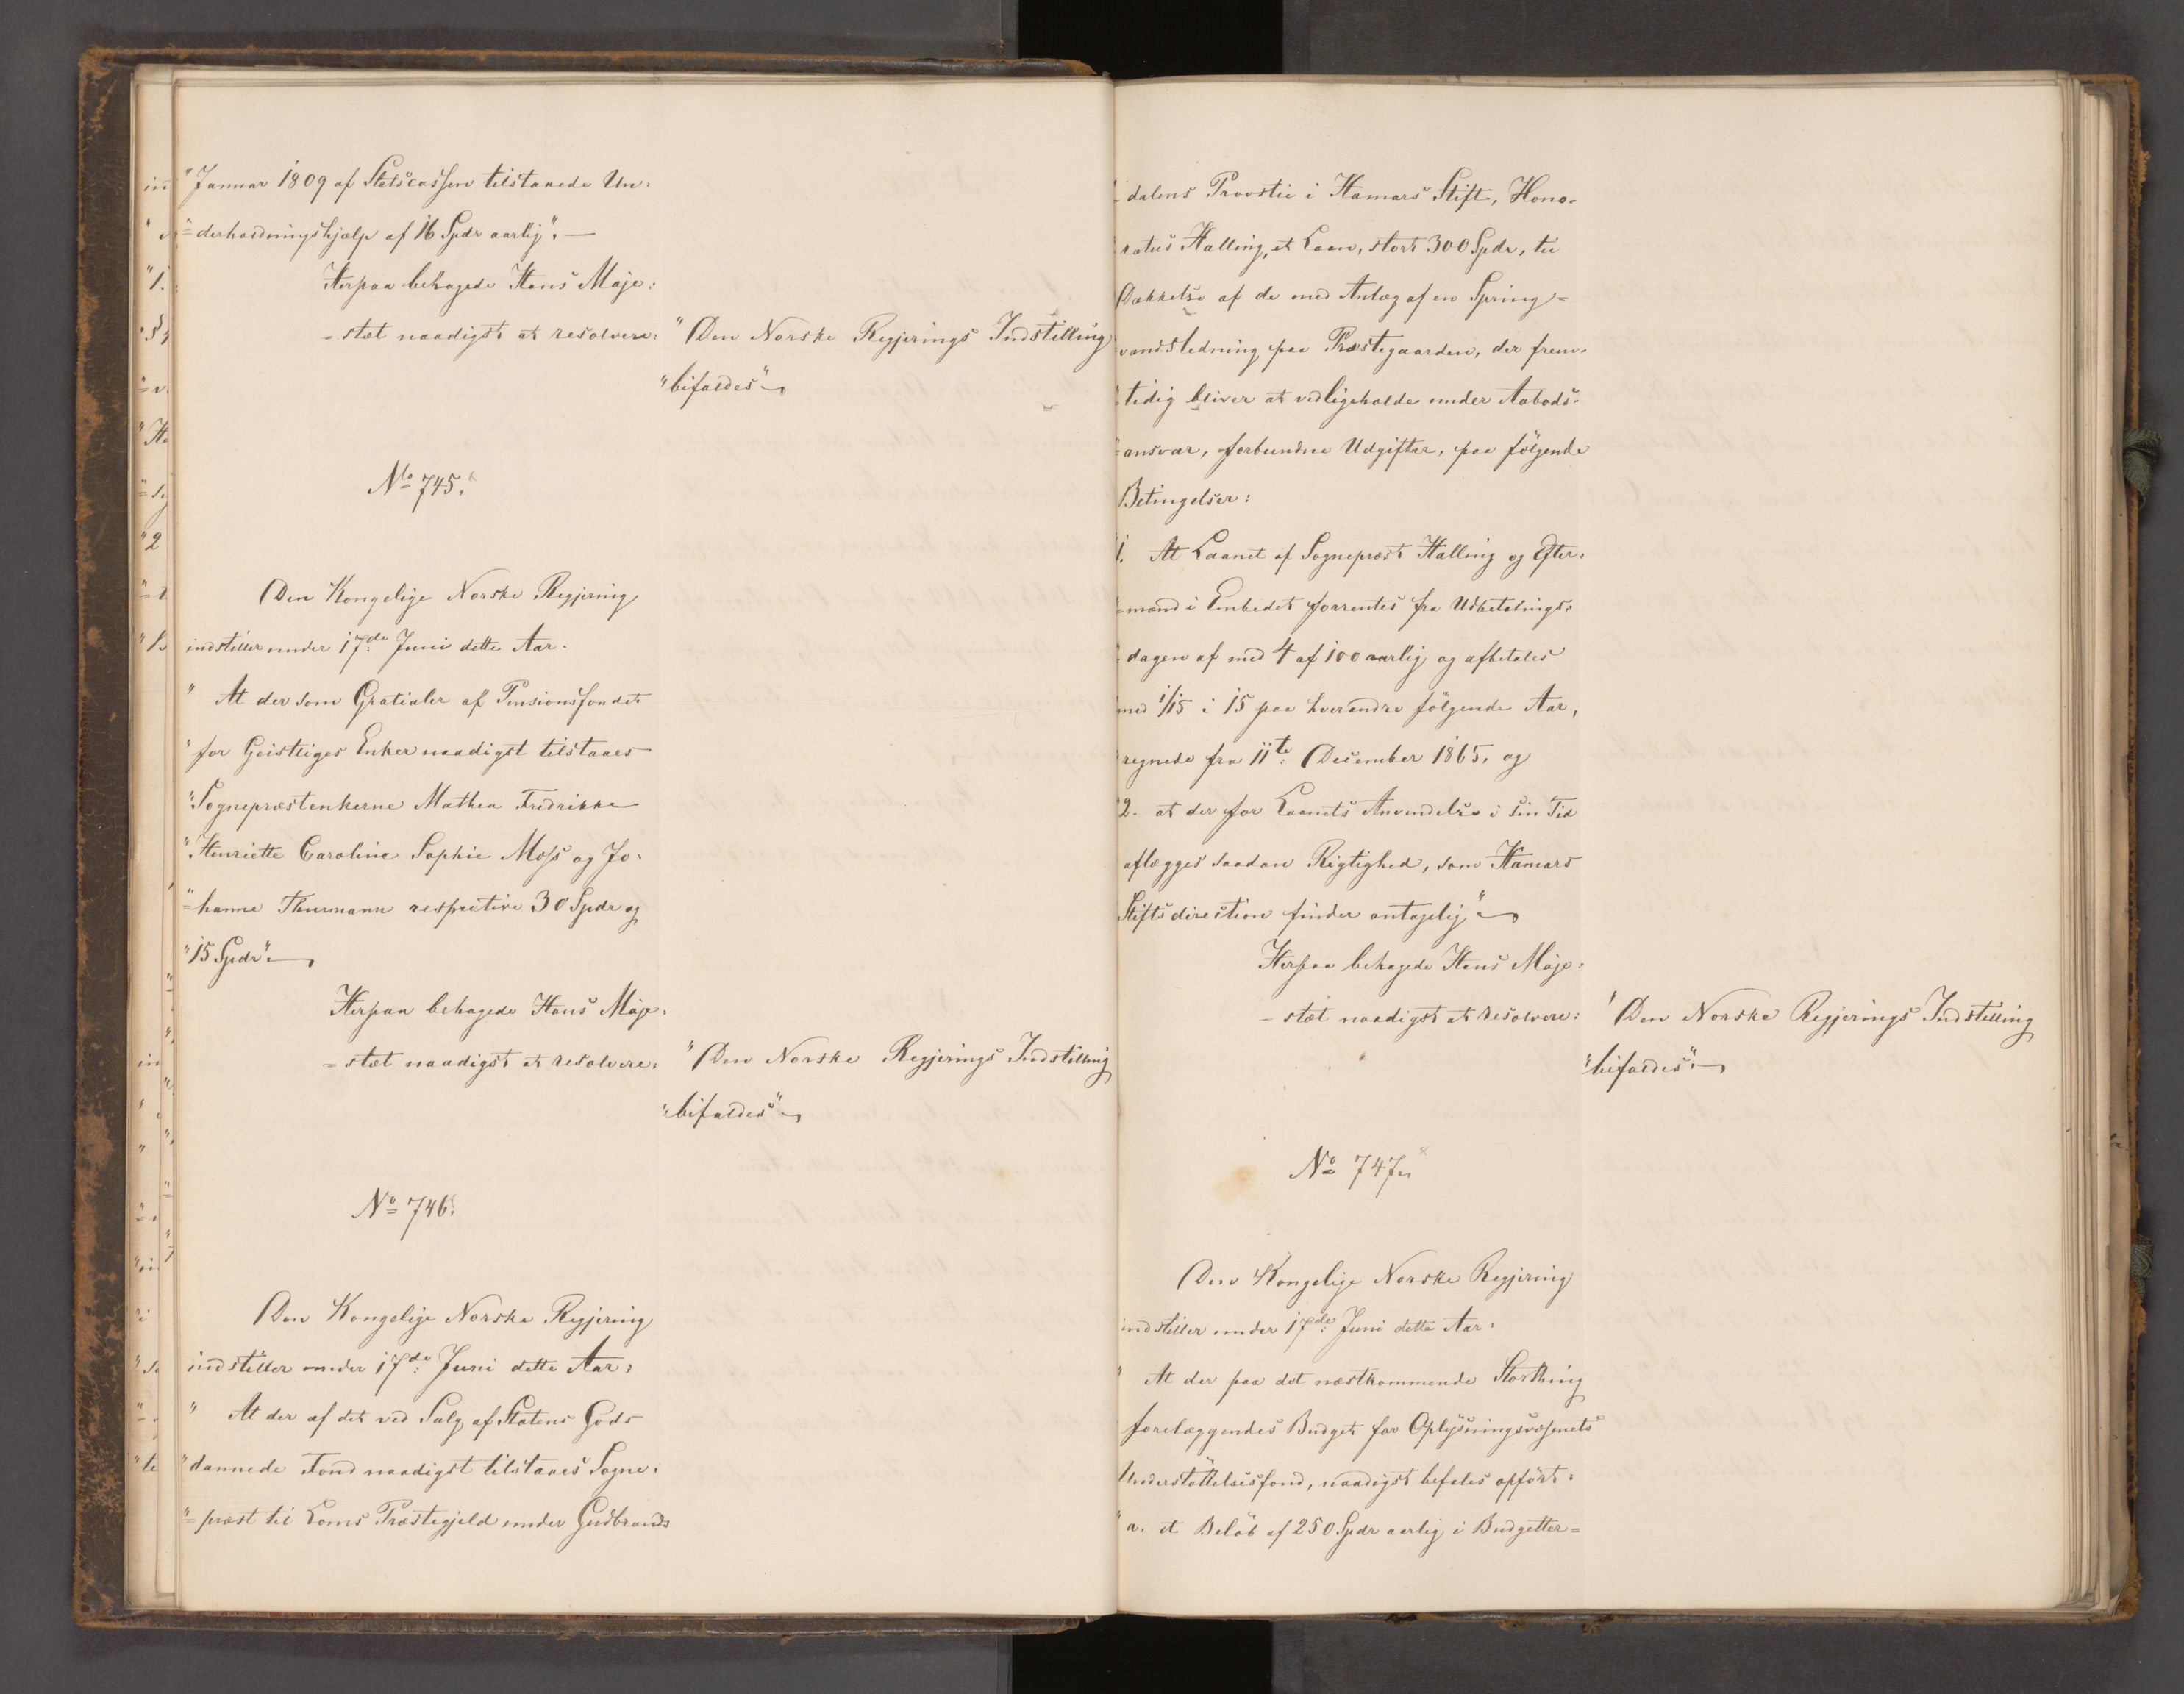 "Januar 1809 af Statscassen tilstaaede Un-
"=derholdningshjælp af 16 Spdr aarlig". —
Herpaa behagede Hans Maje-
=stæt naadigst at resolvere:
"Den Norske Regjerings Indstilling
"bifaldes"
No 745.
Den Kongelige Norske Regjering
indstiller under 17de Juni dette Aar.
" At der som Gratialer af Pensionsfondet
"for Geistliges Enker naadigst tilstaaes
"Sognepræstenkerne Mathea Fredrikke
"Henriette Caroline Sophie Moss og Jo-
"=hanne Thurmann respective 30 Spdr og
"15 Spdr".
Herpaa behagede Hans Maje-
=stæt naadigst at resolvere:
"Den Norske Regjerings Indstilling
"bifaldes"
No 746.
Den Kongelige Norske Regjering
indstiller under 17de Juni dette Aar:
" At der af det ved Salg af Statens Gods
"dannede Fond naadigst tilstaaes Sogne-
"=præst til Loms Præstegjeld under Gudbrands
dalens Provstie i Hamars Stift, Hono-
ratus Halling, et Laan, stort 300 Spdr, til
Dækkelse af de med Anlæg af en Spring=
vandsledning paa Præstegaarden, der frem-
tidig bliver at vedligeholde under Aabods-
ansvar, forbundne Udgifter, paa følgende
Betingelser:
1. At Laanet af Sognepræst Halling og Efter-
=mænd i Embedet forrentes fra Udbetalings-
dagen af med 4 af 100 aarlig og afbetales
med 1/15 i 15 paa hverandre følgende Aar,
regnede fra 11te December 1865, og
2. at der for Laanets Anvendelse i sin Tid
aflægges saadan Rigtighed, som Hamars
Stiftsdirection finder antagelig"
Herpaa behagede Hans Maje-
=stæt naadigst at resolvere:
"Den Norske Regjerings Indstilling
"bifaldes".
No 747.
Den Kongelige Norske Regjering
indstiller under 17de Juni dette Aar:
" At der paa det næstkommende Storthing
forelæggendes Budget for Oplysningsvæsenets
Understøttelsesfond, naadigst befales opført:
"a. et Beløb af 250 Spdr aarlig i Budgetter=